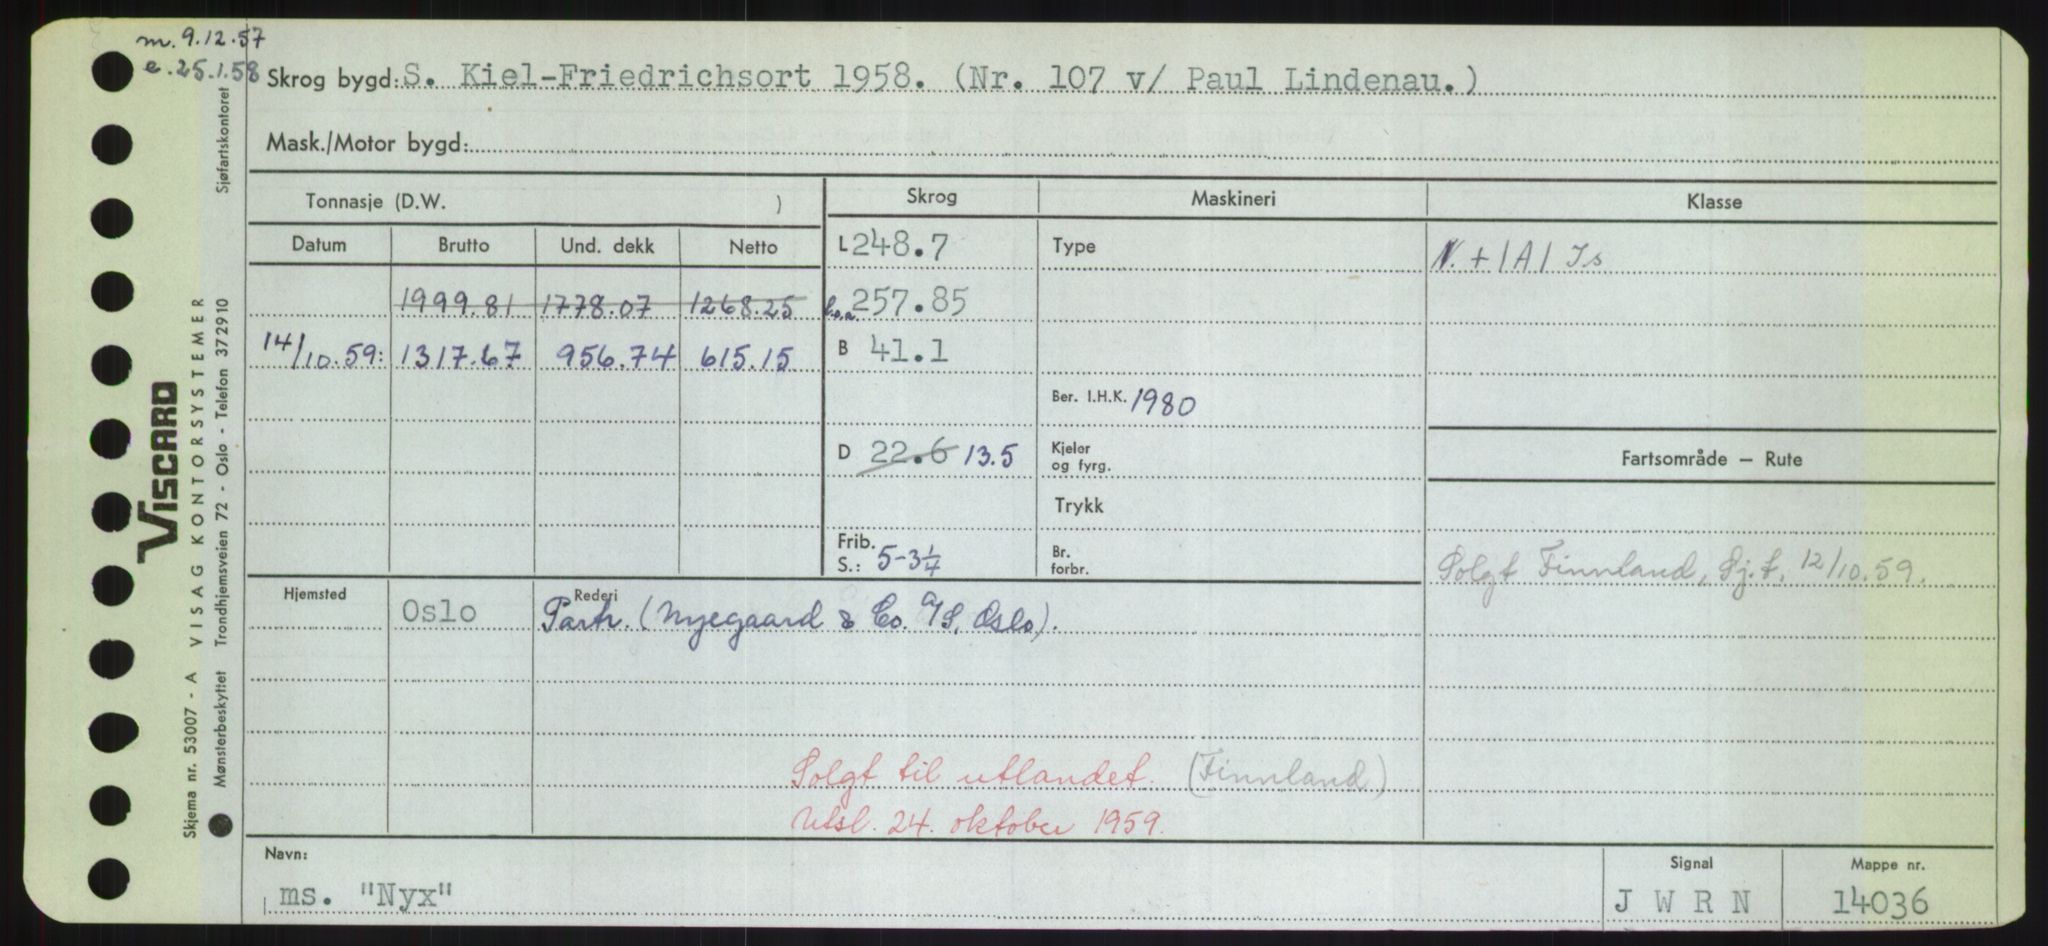 m. 9.12.57
e. 25.1.58
Skrog bygd: S. Kiel-Friedrichsort 1958. (Nr. 107 v/ Paul Lindenau.)
Mask./Motor bygd:
Tonnasje (D.W. )
Skrog
Maskineri
Klasse
Datum Brutto Und. dekk Netto
L 248.7
Type
N. + 1A1 Is
1999.81 1778.07 1268.25
L.o.a. 257.85
14/10.59: 1317.67 956.74 615.15
B 41.1
Ber. I.H.K. 1980
D 22.6 13.5
Kjeler
og fyrg.
Fartsområde — Rute
Trykk
Frib.
S.: 5-3¼
Br.
forbr.
Solgt Finnland, Sj.t. 12/10.59.
Hjemsted
Oslo
Rederi
Partr. (Nyegaard & Co. A/S, Oslo).
Solgt til utlandet. (Finnland)
Utsl. 24. oktober 1959.
Navn:
ms. "Nyx"
Signal
J W R N
Mappe nr.
14036
VISCARD
Skjema nr. 53007 - A VISAG KONTORSYSTEMER
Mønsterbeskyttet Trondhjemsveien 72 - Oslo - Telefon 372910 Sjøfartskontoret